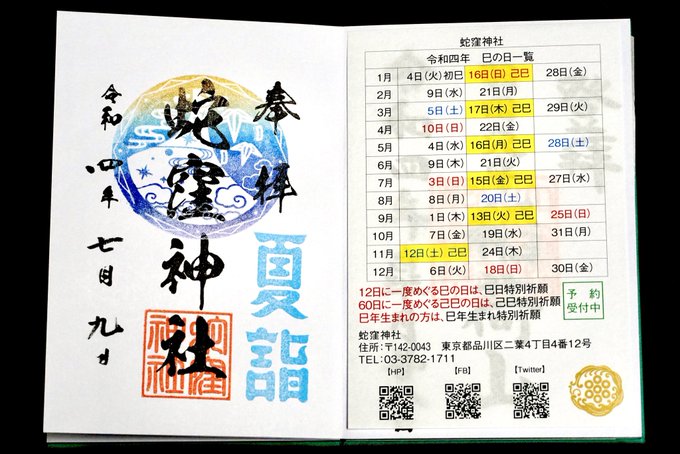 奉拝
蛇窪神社
夏詣
令和四年七月九日
蛇窪神社
蛇窪神社
令和四年 巳の日一覧
1月 4日(火)初巳 16日(日)己巳 28日(金)
2月 9日(水) 21日(月)
3月 5日(土) 17日(木)己巳 29日(火)
4月 10日(日) 22日(金)
5月 4日(水) 16日(月)己巳 28日(土)
6月 9日(木) 21日(火)
7月 3日(日) 15日(金)己巳 27日(水)
8月 8日(月) 20日(土)
9月 1日(木) 13日(火)己巳 25日(日)
10月 7日(金) 19日(水) 31日(月)
11月 12日(土)己巳 24日(木)
12月 6日(火) 18日(日) 30日(金)
12日に一度めぐる巳の日は、巳日特別祈願
60日に一度めぐる己巳の日は、己巳特別祈願
巳年生まれの方は、巳年生まれ特別祈願
予約
受付中
蛇窪神社
住所:〒142-0043 東京都品川区二葉4丁目4番12号
TEL:03-3782-1711
【HP】 【FB】 【Twitter】